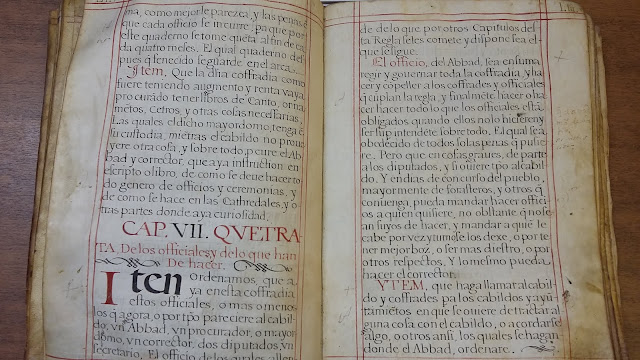 na, como mejor le parezca, y las penas ē
que cada officio se incurre, pa que por
este quaderno se tome queta al fin de ca
da quatro meses. El qual quaderno des
pues q̃ fenecido se guarde en el arca.
Item. Que la dīta coffradia como
fuere teniendo augmento y renta vaya
procurādo tener libros de Canto, orna
mētos, Cetros, y otras cosas necessarias,
Las quales el dicho mayordomo, tenga ē
su custodia, miētras el cabildo no prouē
yere otra cosa, y sobre todo, pcure el Ab
bad y corrector, que aya instruction en
escripto o libro, de como se deue hazer to
do genero de officios y ceremonias, y
de como se hace en las Cathedrales, y o
tras partes donde aya curiosidad.
CAP. VII. QVE TRA
TA De los officiales, y de lo que han
De hacer.
Iten Ordenamos, que a
ya en esta coffradia
estos officiales, o mas o menos
los q̃ agora, o por tp̄o pareciere al cabil-
do, vn Abbad, vn procurador, o mayor
domo, vn corrector, dos diputados vn
secretario, El officio de los quales
de de lo que por otros Capitulos des
ta Regla se les comete y dispone sea el
que se sigue.
El officio, del Abbad, sea en suma
regir y gouernar toda la coffradia, y ha
cer y cōpeller a los cofrades y officiales
q̃ cūplan la regla, y finalmēte hacer o ha
cer hacer todo lo que los officiales estā
obligados quando ellos no lo hicieren y
ser supintendēte sobre todo. El qual sea
obedecido de todos so las penas q̃ pusie
re. Pero que en cosas graues, de parte
a los diputados, y si vuiere tp̄o al cabildo.
Y en dias de concurso del pueblo,
mayormente de forasteros, y otros q̃
conuēga, pueda mandar hacer offici
os a quien quisiere, no obstāte q̃ no se
an suyos de hacer, y mandar a quiē le
cabe por vez y turno se los dexe, o por te
ner mejor boz, o ser mas diestro, o por
otros respectos, Y lo mesmo pueda
hacer el corrector.
YTEM, que haga llamar al cabil
do y coffrades pa los cabildos y ayū
tamiētos en que se vuiere de tractar al
guna cosa con el cabildo, o acordarse
algo, o otros ansi, los quales se hagan
donde el Abbad, ordenare.